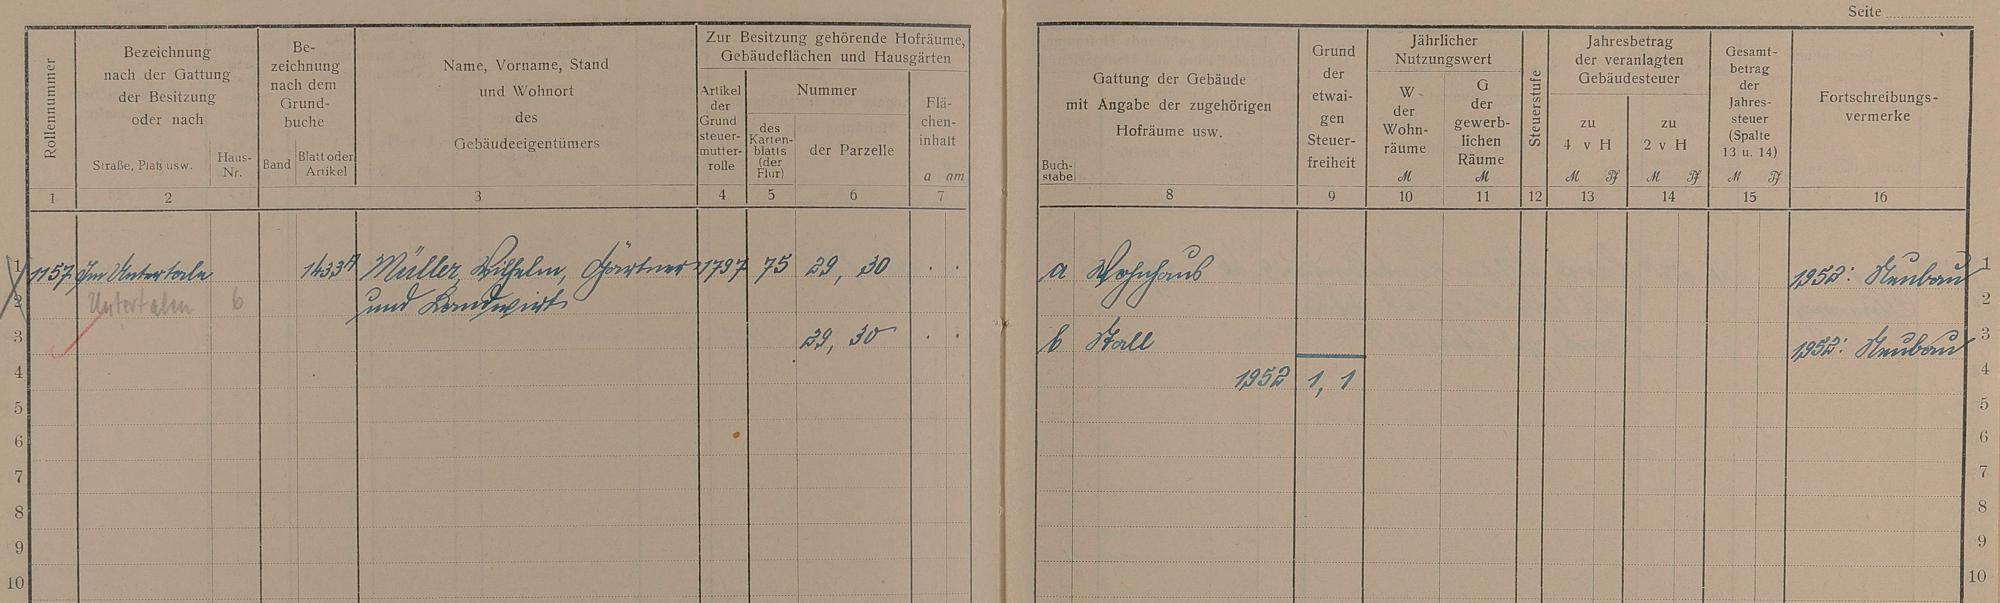 Seite
Rollennummer
Bezeichnung
nach der Gattung
der Besitzung
oder nach
Straße, Platz usw.
Haus-
Nr.
Be-
zeichnung
nach dem
Grund-
buche
Band
Blatt oder
Artikel
Name, Vorname, Stand
und Wohnort
des
Gebäudeeigentümers
Zur Besitzung gehörende Hofräume,
Gebäudeflächen und Hausgärten
Artikel
der
Grund
steuer-
mutter-
rolle
Nummer
des
Karten-
blatts
(der
Flur)
der Parzelle
Flä-
chen-
inhalt
a qm
1 2 3 4 5 6 7
Buch-
stabe
Gattung der Gebäude
mit Angabe der zugehörigen
Hofräume usw.
Grund
der
etwai-
gen
Steuer-
freiheit
Jährlicher
Nutzungswert
W
der
Wohn-
räume
M
G
der
gewerb-
lichen
Räume
M
Steuerstufe
Jahresbetrag
der veranlagten
Gebäudesteuer
zu
4 v H
M Pf
zu
2 v H
M Pf
Gesamt-
betrag
der
Jahres-
steuer
(Spalte
13 u. 14)
M Pf
Fortschreibungs-
vermerke
8 9 10 11 12 13 14 15 16
1 1157 Im Untertale 1433 A Müller, Wilhelm, Gärtner 1797 75 29, 30
2 Untertalen 6 und Landwirt
3 29, 30
4
5
6
7
8
9
10
a Wohnhaus 1952: Neubau 1
2
b Stall 1952: Neubau 3
1952 1, 1 4
5
6
7
8
9
10